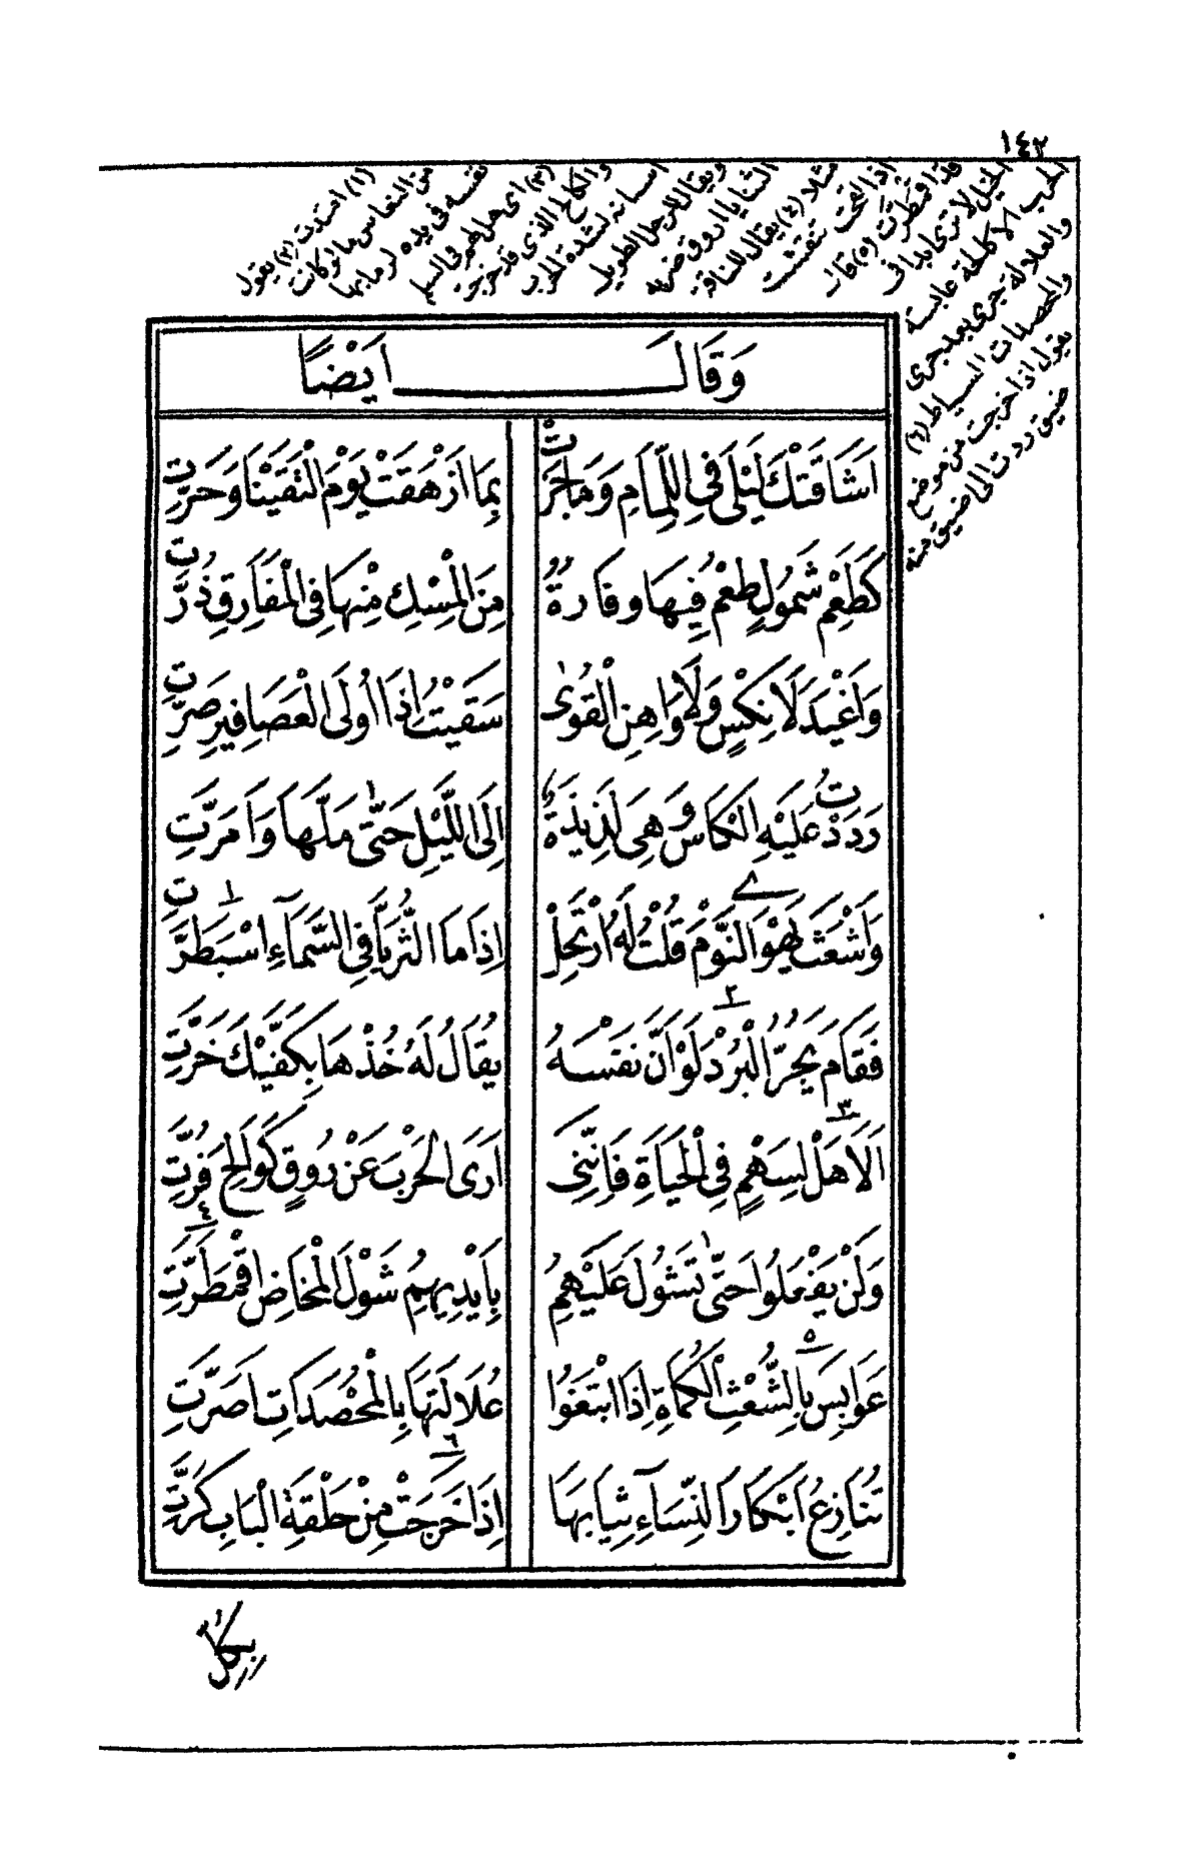 ١٤٢
(١) امتدت (٢) يقول
من النعاس ما لوكانت
نفسه فى يده لرمابها
(٣) اى هل لهم فى السلم
والكالح الذى قد خرجت
اسنانه لشدة الحرب
ويقال للرجل الطويل
الثنايا اروق ضربه
مثلا (٤) يقال للناقة
اذا لقحت
فذا قمطرت (٥) قال
الخيل لا ترى ابدا فى
الحرب الا كالحة عابسة
والعلالة جرى بعد جرى
والمحصدات السياط (٦)
يقول اذا خرجت من موضع
ضيق ردت الى ضيق منه
وَقَالَ اَيْضًا
اَشَاقَتْكَ لَيْلَى فِى اللِّمَامِ وَمَا جَزَتْ بِمَا اَزْهَقَتْ يَوْمَ الْتَقَيْنَا وَحَرَّتِ
كَطَعْمِ شَمُولٍ طَعْمُ فِيهَا وفَارَةٌ مِنَ الْمِسْكِ مِنْهَا فِى الْمَفَارِقِ ذُرَّتِ
وَاَغْيَدَ لَا نِكْسٍ وَلَا وَاهِنِ الْقُوٰى سَقَيْتُ اِذَا اُولَى الْعَصَافِيرِ صَرَّتِ
رَدَدْتُ عَلَيْهِ الْكَاسَ وَهِىَ لَذِيذَةٌ اِلَى اللَّيْلِ حَتّٰى مَلَّهَا وَاَمَرَّتِ
وَاَشْعَثَ يَهْوَى النَّوْمَ قُلْتُ لَهُ ارْتَحِلْ اِذَا مَا الثُّرَيَّا فِى السَّمَآءِ اسْبَطَرَّتِ ١
فَقَامَ يَجُرُّ الْبُرْدَ لَوْ اَنَّ نَفْسَهُ ٢ يُقَالُ لَهُ خُذْهَا بِكَفَّيْكَ خَرَّتِ
اَلَا هَلْ لِسَهْمٍ فِى الْحَيَاةِ فَاِنَّنِى ٣ اَرَى الْحَرْبَ عَنْ رُوقٍ كَوَالِحَ فُرَّتِ
وَلَنْ يَفْعَلُوا حَتّٰى تَشُولَ عَلَيْهِمُ بِاَيْدِيهِمُ شَوْلَ الْمَخَاضِ اقْمَطَرَّتِ ٤
عَوَابِسَ بِالشُّعْثِ الْكُمَاةِ اِذَا ابْتَغَوْا ٥ عُلَالَتَهَا بِالْمُحْصَدَاتِ اَصَرَّتِ
تَنَازِعُ اَبْكَارَ النِّسَآءِ ثِيَابَهَا اِذَا خَرَجَتْ مِنْ حَلْقَةِ الْبَابِ كَرَّتِ ٦
بِكُلِّ